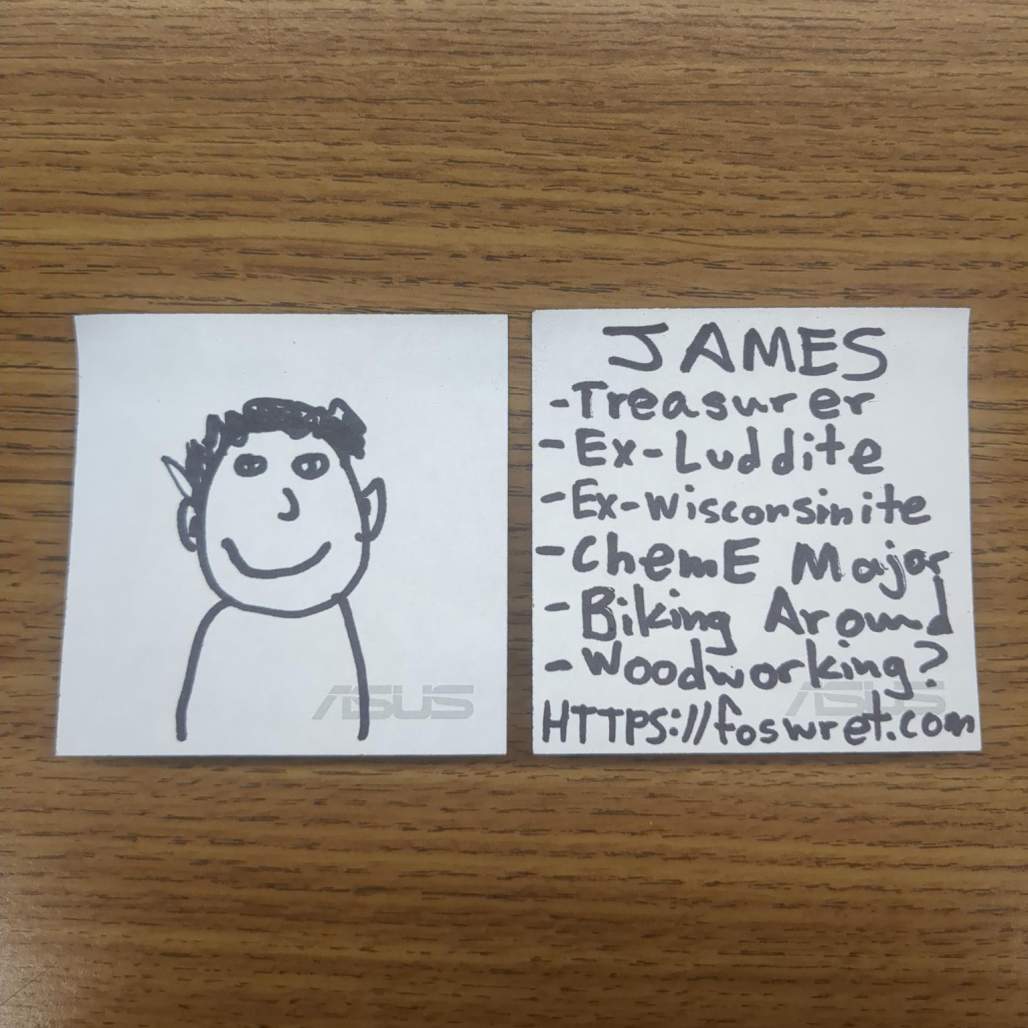 JAMES
-Treasurer
-Ex-Luddite
-Ex-Wiscorsinite
-ChemE Major
-Biking Around
-Woodworking?
HTTPS://foswret.com
ASUS
ASUS